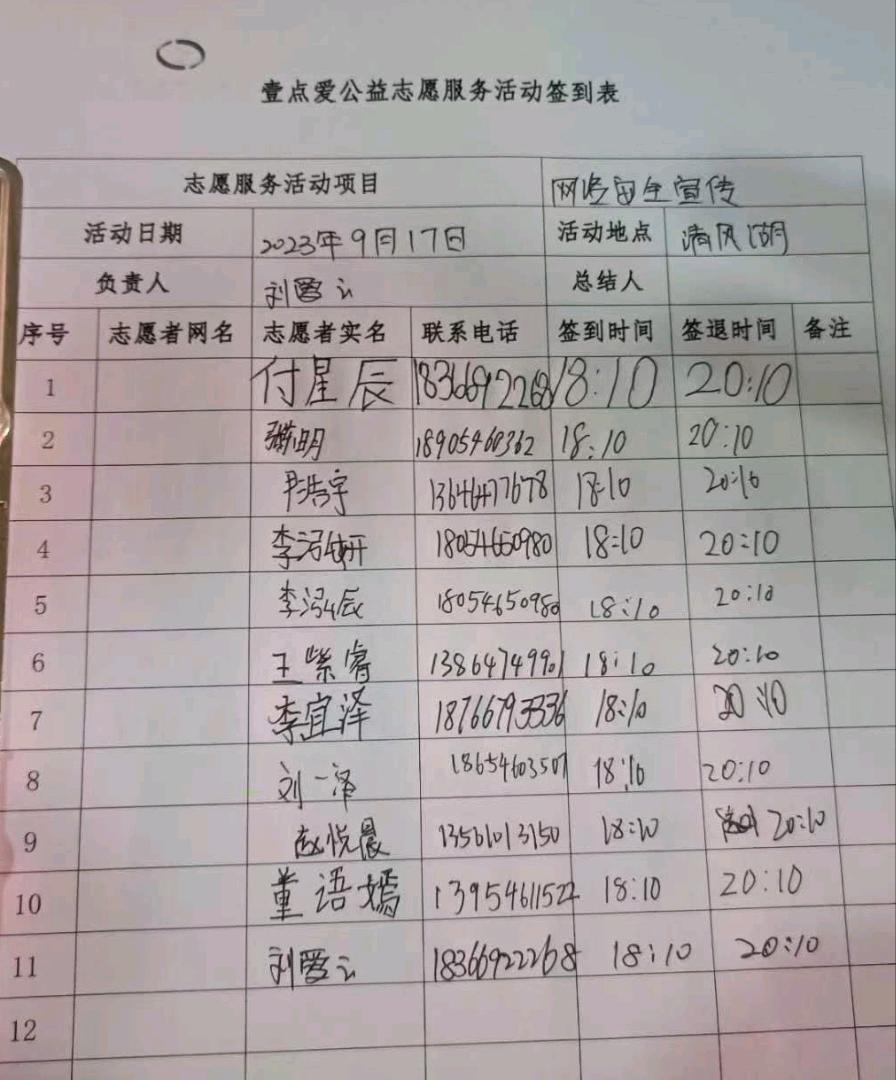 壹点爱公益志愿服务活动签到表
志愿服务活动项目 宣传
活动日期 2023年9月17日 活动地点 清风湖
负责人 刘爱云 总结人
序号 志愿者网名 志愿者实名 联系电话 签到时间 签退时间 备注
1 付星辰 18366922268 18:10 20:10
2 明 18905460362 18:10 20:10
3 尹浩宇 13646477678 18:10 20:10
4 李泓妍 18054650980 18:10 20:10
5 李泓辰 18054650980 18:10 20:10
6 王紫睿 13864749901 18:10 20:10
7 李宜泽 18766793336 18:10 20:10
8 刘一泽 18654603507 18:10 20:10
9 赵悦晨 13561013150 18:10 20:10
10 董语嫣 13954611522 18:10 20:10
11 刘爱云 18366922268 18:10 20:10
12